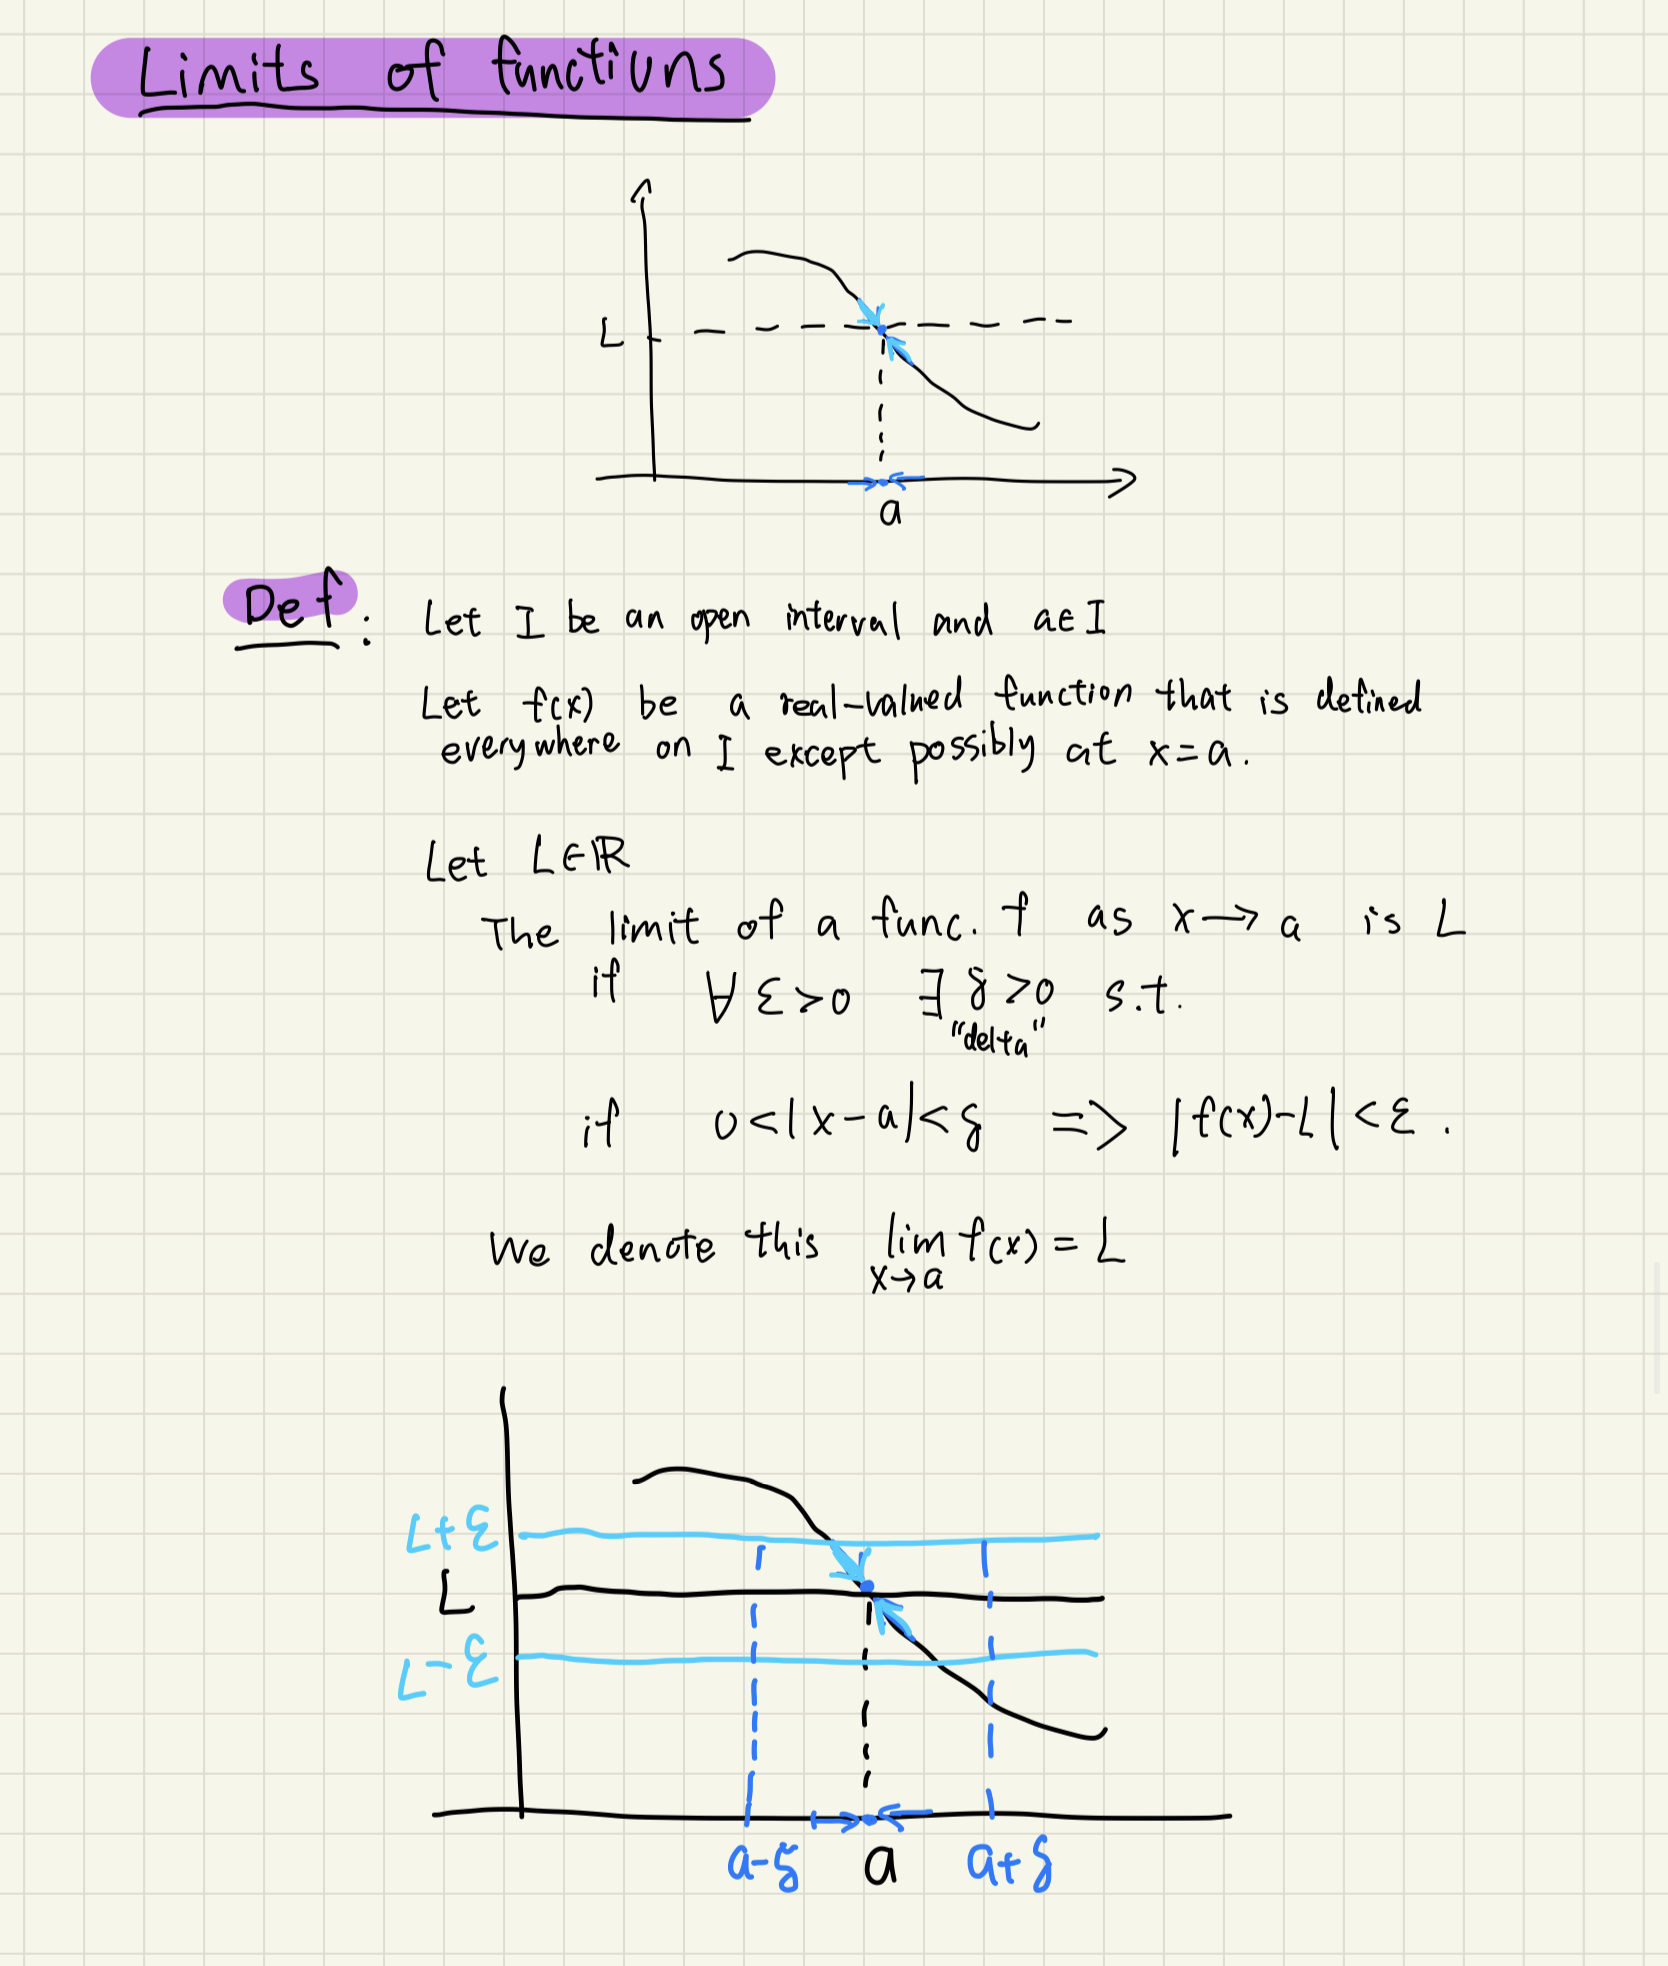 Limits of functions
L
a
Def: Let I be an open interval and a∈I
Let f(x) be a real-valued function that is defined
everywhere on I except possibly at x=a.
Let L∈ℝ
The limit of a func. f as x→a is L
if ∀ε>0 ∃δ>0 s.t.
"delta"
if 0<|x-a|<δ => |f(x)-L|<ε.
We denote this lim f(x) = L
x→a
L+ε
L
L-ε
a-δ a a+δ